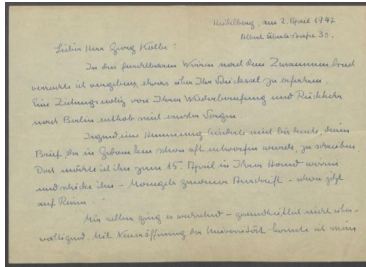 Heidelberg, am 2. April 1947
Lieber Herr Georg Kolbe!
In den furchtbaren Wirren nach dem Zusammenbruch
versuchte ich vergebens etwas über Ihr Schicksal zu erfahren.
Eine Zeitungsnotiz von Ihrer Wiederberufung und Rückkehr
nach Berlin enthob mich der Sorgen
Irgend eine Hemmung hinderte mich bis heute, einen
Brief, der in Gedanken schon oft entworfen wurde, zu schreiben
Doch möchte ich ihn zum 15. April in Ihrer Hand wissen
und schicke ihn - Mangels genauer Anschrift - schon jetzt
auf Reisen
Mir selber ging es wechselnd - gesundheitlich nicht über-
wältigend. Mit Neueröffnung der Universität konnte ich mein